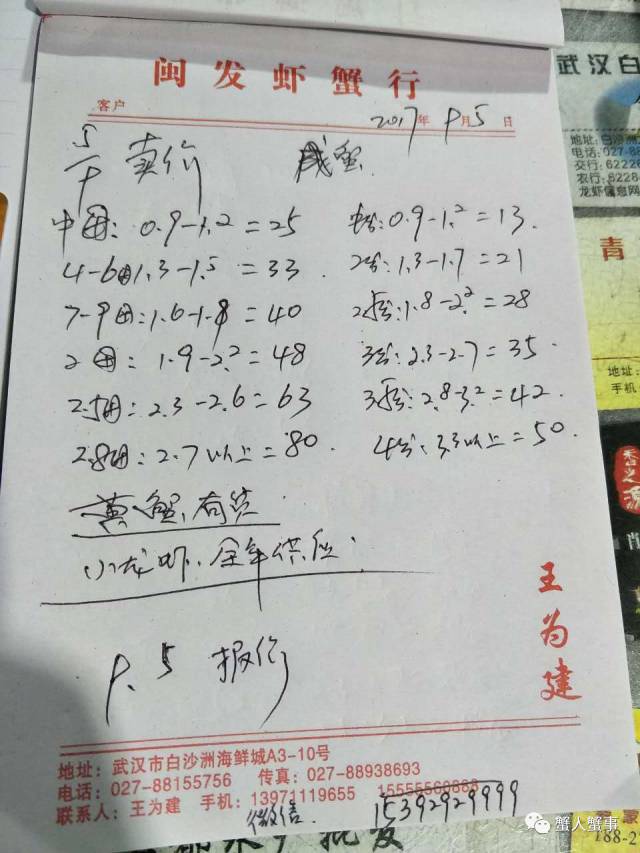 闽发虾蟹行
客户
2017年9月5日
5/9 卖价 咸蟹
中母: 0.9-1.2=25
4-6母1.3-1.5=33
7-9母:1.6-1.8=40
2母: 1.9-2.2=48
2.5母:2.3-2.6=63
2.8母:2.7以上=80
0.9-1.2=13.
1.3-1.7=21
1.8-2.2=28
2.3-2.7=35.
2.8-3.2=42.
3.3以上=50.
黄蟹,有货
小龙虾,全年供应.
9.5 报价
王为建
地址:武汉市白沙洲海鲜城A3-10号
电话:027-88155756 传真:027-88938693
联系人:王为建 手机:13971119655
微信 15392929999
武汉白
地址:白沙洲
电话:027-8
交行:62226
农行:6228
龙虾信息网
青
地址:
手机
肖
蟹人蟹事
188-2
批发